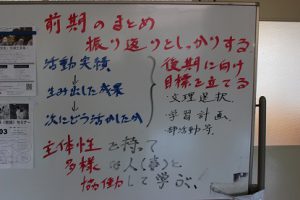 前期のまとめ
振り返りをしっかりする
活動実績
↓
生み出した成果
↓
次にどう活かしたか
後期に向け
目標を立てる
・文理選択
・学習計画
・部活動等
主体性を持って
多様な人(事)と
協働して学ぶ
03